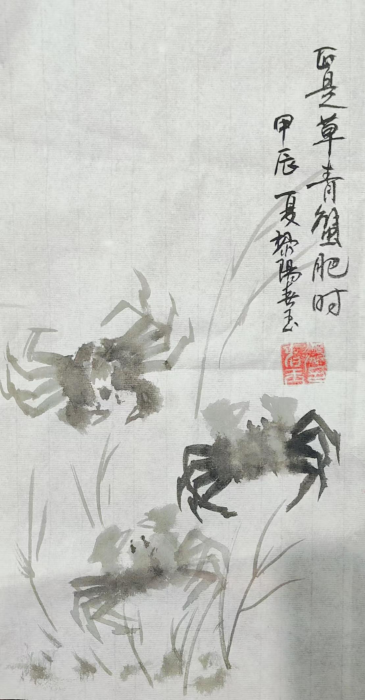 正是草青蟹肥时
甲辰夏黎陽春玉